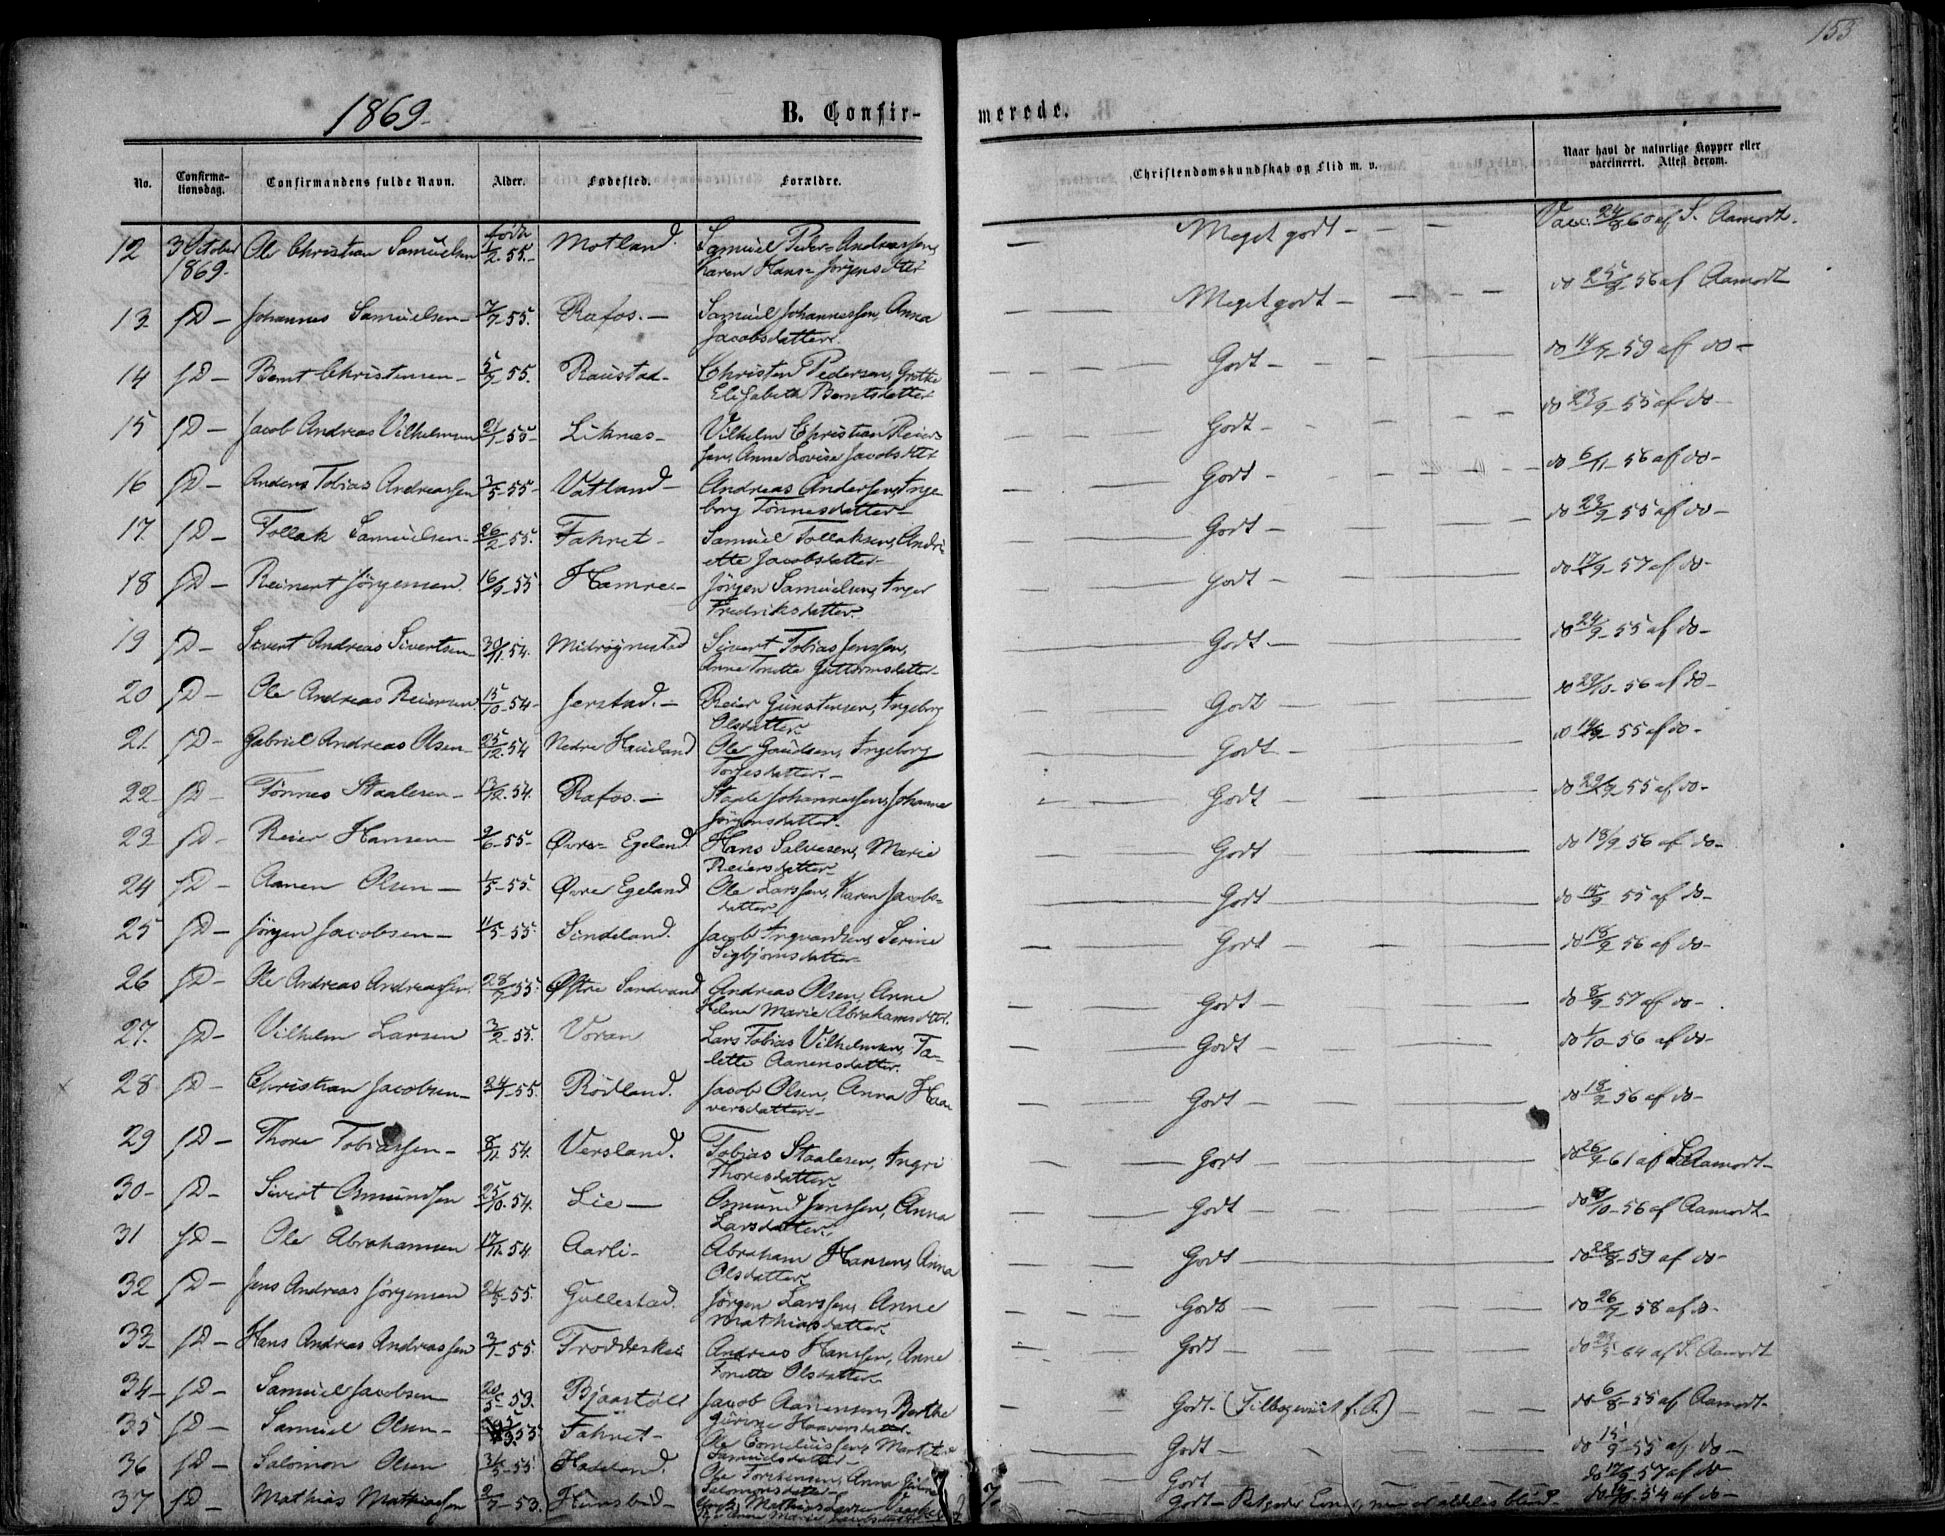 153
1869.
B. Confir-
merede.
No.
Confirma-
tionsdag.
Confirmandens fulde Navn.
Alder.
Fødested.
Forældre.
Christendomskundskab og Flid m. v.
Naar havt de naturlige Kopper eller
vaccineret. Attest derom.
12 3 October Ole Christian Samuelsen født 1/2 55. Motland. Samuel Peder Andreassen,
1869. Karen Hans Jörgensdtter
Meget godt - Vacc. 24/8 60 af S. Aamodt.
13 D - Johannes Samuelsen - 7/7 55. Rafos. - Samuel Johannessen, Anna
Jacobsdatter.
Meget godt - do 25/8 56 af Aamodt
14 D - Bernt Christensen - 5/7 55. Raustad - Christen Pedersen, Grethe
Elisabeth Berntsdatter
Godt - do 14/7 59 af do -
15 D - Jacob Andreas Vilhelmsen 21/1 55 - Liknes - Vilhelm Christian Reier-
sen, Anne Lovise Jacobsdtr
Godt - do 23/9 55 af do -
16 D - Anders Tobias Andreassen 3/5 55 - Vatland - Andreas Andersen, Inge-
borg Tönnesdatter -
Godt - do 6/11 56 af do -
17 D - Tollak Samuelsen - 26/2 55. Fahret - Samuel Tollaksen, Andri-
ette Jacobsdatter -
Godt - do 23/9 55 af do -
18 D - Reinert Jörgensen 16/9 55 Hamre - Jörgen Samuelsen, Inger
Fredriksdatter.
Godt - do 17/9 57 af do -
19 D - Sivert Andreas Sivertsen 30/11 54. Midrøgnestad Sivert Tobias Jenssen,
Anne Tonette Guttormsdatter -
Godt - do 24/9 55 af do -
20 D - Ole Andreas Reiersen 15/10 54 - Jerstad. - Reier Gunstensen, Ingeborg
Olsdatter -
Godt - do 29/10 56 af do -
21 D - Gabriel Andreas Olsen - 25/12 54 Nedre Haugland Ole Gaudsen, Ingeborg
Torjesdatter. -
Godt - do 14/9 55 af do -
22 D - Tönnes Staalesen - 13/12 54. Rafos. - Staale Johannessen, Johanne
Jörgensdatter -
Godt - do 29/9 55 af do -
23 D - Reier Hansen - 9/6 55 - Øvre Egeland Hans Salvesen, Marie
Reiersdatter -
Godt - do 18/9 56 af do -
24 D - Aanen Olsen - 1/5 55. Øvre Egeland Ole Larssen, Karen Jacobs-
datter
Godt - do 15/9 55 af do -
25 D - Jörgen Jacobsen - 11/5 55. Sindeland. Jacob Ingvardsen, Serine
Sigbjørnsdatter -
Godt - do 18/9 56 af do -
26 D - Ole Andreas Andreassen. 28/7 55. Østre Sandvand Andreas Olsen, Anne
Helene Marie Abrahamsdttr.
Godt - do 8/9 57 af do -
27. D - Vilhelm Larsen 3/2 55. Voran Lars Tobias Vilhelmsen, Ta-
lette Aanensdatter.
Godt - do 1/10 56 af do -
28 D - Christian Jacobsen - 24/7 55. Rödland. Jacob Olsen, Anna Haa-
versdatter -
Godt - do 18/9 56 af do -
29 D - Thore Tobiassen - 8/11 54. Versland. Tobias Staalesen, Ingri
Thoresdatter -
Godt - do 26/9 61 af S. Aamodt -
30 - D - Sivert Osmundsen 25/10 54. Lie - Osmund Jenssen, Anna
Larsdatter -
Godt - do 9/10 56 af Aamodt -
31 D - Ole Abrahamsen 17/12 54 Aarli - Abraham Hansen, Anna
Olsdatter
Godt - do 22/8 59 af do -
32 D - Jens Andreas Jörgensen 21/5 55. Gullestad. Jörgen Larssen, Anne
Mathiasdatter.
Godt - do 26/7 58 af d -
33 - D - Hans Andreas Andreassen 3/7 55. Froddeskei Andreas Hanssen, Anne
Tonette Olsdatter
Godt - do 23/5 64 af S. Aamodt
34 - D - Samuel Jacobsen 20/5 53. Bjaastöll Jacob Aanensen, Berthe
Gurine Haaversdatter
Godt - do 6/8 55 af Aamodt -
35 D - Samuel Olsen - 55 Fahret - Ole Corneliussen,
Samuelsdatter -
Godt - do 15/9 55 af do -
36 D - Salomon Olsen 31/5 55 Hadeland. Ole Torkensen, Anna
Salomonsdatter -
Godt - do 17/9 57 af do
37 D - Mathias Mathiassen 2/7 53.
Godt - 54 af do -